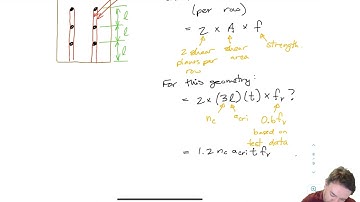 l
l
l
(per row)
= 2 × A × f
2 shear
planes per
row
shear
area
strength
For this geometry:
= 2 × (3l)(t) × fᵧ ?
n꜀
a cri
0.6fᵧ
based on
test data
= 1.2 n꜀ a cri t fᵧ